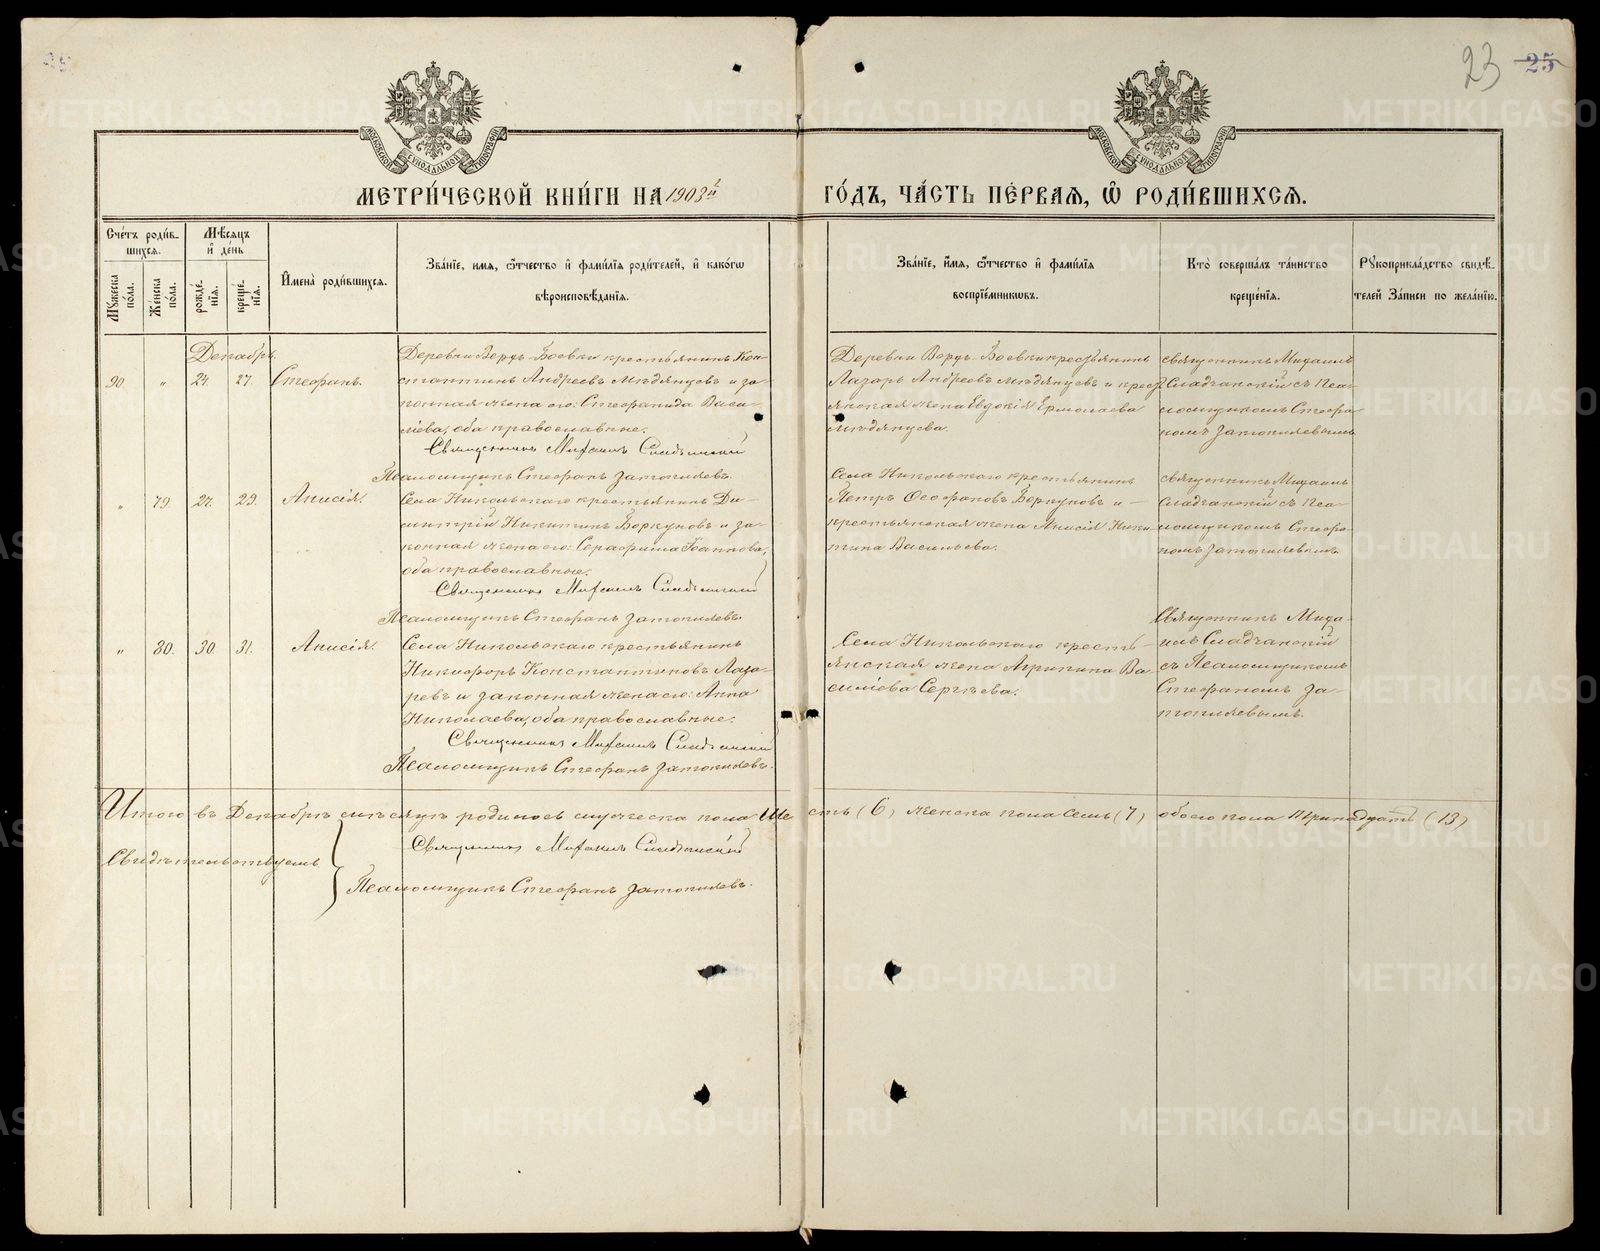 23 25
МОСКОВСКОЙ СѴНОДАЛЬНОЙ ТИПОГРАФІИ
МОСКОВСКОЙ СѴНОДАЛЬНОЙ ТИПОГРАФІИ
МЕТРИ́ЧЕСКОЙ КНИ́ГИ НА 1903й ГО́ДЪ, ЧА́СТЬ ПЕ́РВАѦ, Ѡ҆ РОДИ́ВШИХСѦ.
Сче́тъ роди́в-
шихсѧ.
Му́жеска по́ла.
Же́нска по́ла.
Мѣ́сѧцъ
и҆ де́нь
рожде́нїѧ.
креще́нїѧ.
И҆мена̀ роди́вшихсѧ.
Зва́нїе, имѧ, ѻ҆́тчество и҆ фами́лїѧ роди́телей, и҆ како́гѡ
вѣроисповѣ́данїѧ.
Зва́нїе, и҆́мѧ, ѻ҆́тчество и҆ фами́лїѧ
воспрїе́мникѡвъ.
Кто̀ соверша́лъ та́инство
креще́нїѧ.
Рꙋкоприкла́дство свидѣ́-
телей За́писи по жела́нїю.
Декабрь.
90. " 24. 27. Стефанъ.
Деревни Верхъ-Боевки крестьянинъ Кон-
стантинъ Андреевъ Мѣдянцевъ и за-
конная жена его: Стефанида Васи-
лiева, оба православные.
Священникъ Михаилъ Сладчанскій
Псаломщикъ Стефанъ Затопляевъ.
Деревни Верхъ-Боевки крестьянинъ
Лазарь Андреевъ Мѣдянцевъ и крест-
янская жена Евдокія Ермолаева
Мѣдянцева.
священникъ Михаилъ
Сладчанскій съ Пса-
ломщикомъ Стефа-
номъ Затопляевымъ.
" 79. 27. 29. Анисія.
Села Никольскаго крестьянинъ Ди-
митрій Никитинъ Боркуновъ и за-
конная жена его: Серафима Іоаннова,
оба православные.
Священникъ Михаилъ Сладчанскій
Псаломщикъ Стефанъ Затопляевъ.
Села Никольскаго крестьянинъ
Петръ Феофановъ Боркуновъ и
крестьянская жена Анисія Ники-
тина Васильева.
священникъ Михаилъ
Сладчанскій съ Пса-
ломщикомъ Стефа-
номъ Затопляевымъ.
" 80. 30. 31. Анисія.
Села Никольскаго крестьянинъ
Никифоръ Константиновъ Лаза-
ревъ и законная жена его: Анна
Николаева, оба православные.
Священникъ Михаилъ Сладчанскій
Псаломщикъ Стефанъ Затопляевъ.
Села Никольскаго кресть-
янская жена Агрипина Ва-
силіева Сергѣева.
Священникъ Миха-
илъ Сладчанскій
съ Псаломщикомъ
Стефаномъ За-
топляевымъ.
Итого въ Декабрѣ мѣсяцѣ родилось мужеска пола шесть (6) женска пола семь (7) обоего пола тринадцать (13)
Свидѣтельствуемъ
Священникъ Михаилъ Сладчанскій
Псаломщикъ Стефанъ Затопляевъ.
METRIKI.GASO-URAL.RU